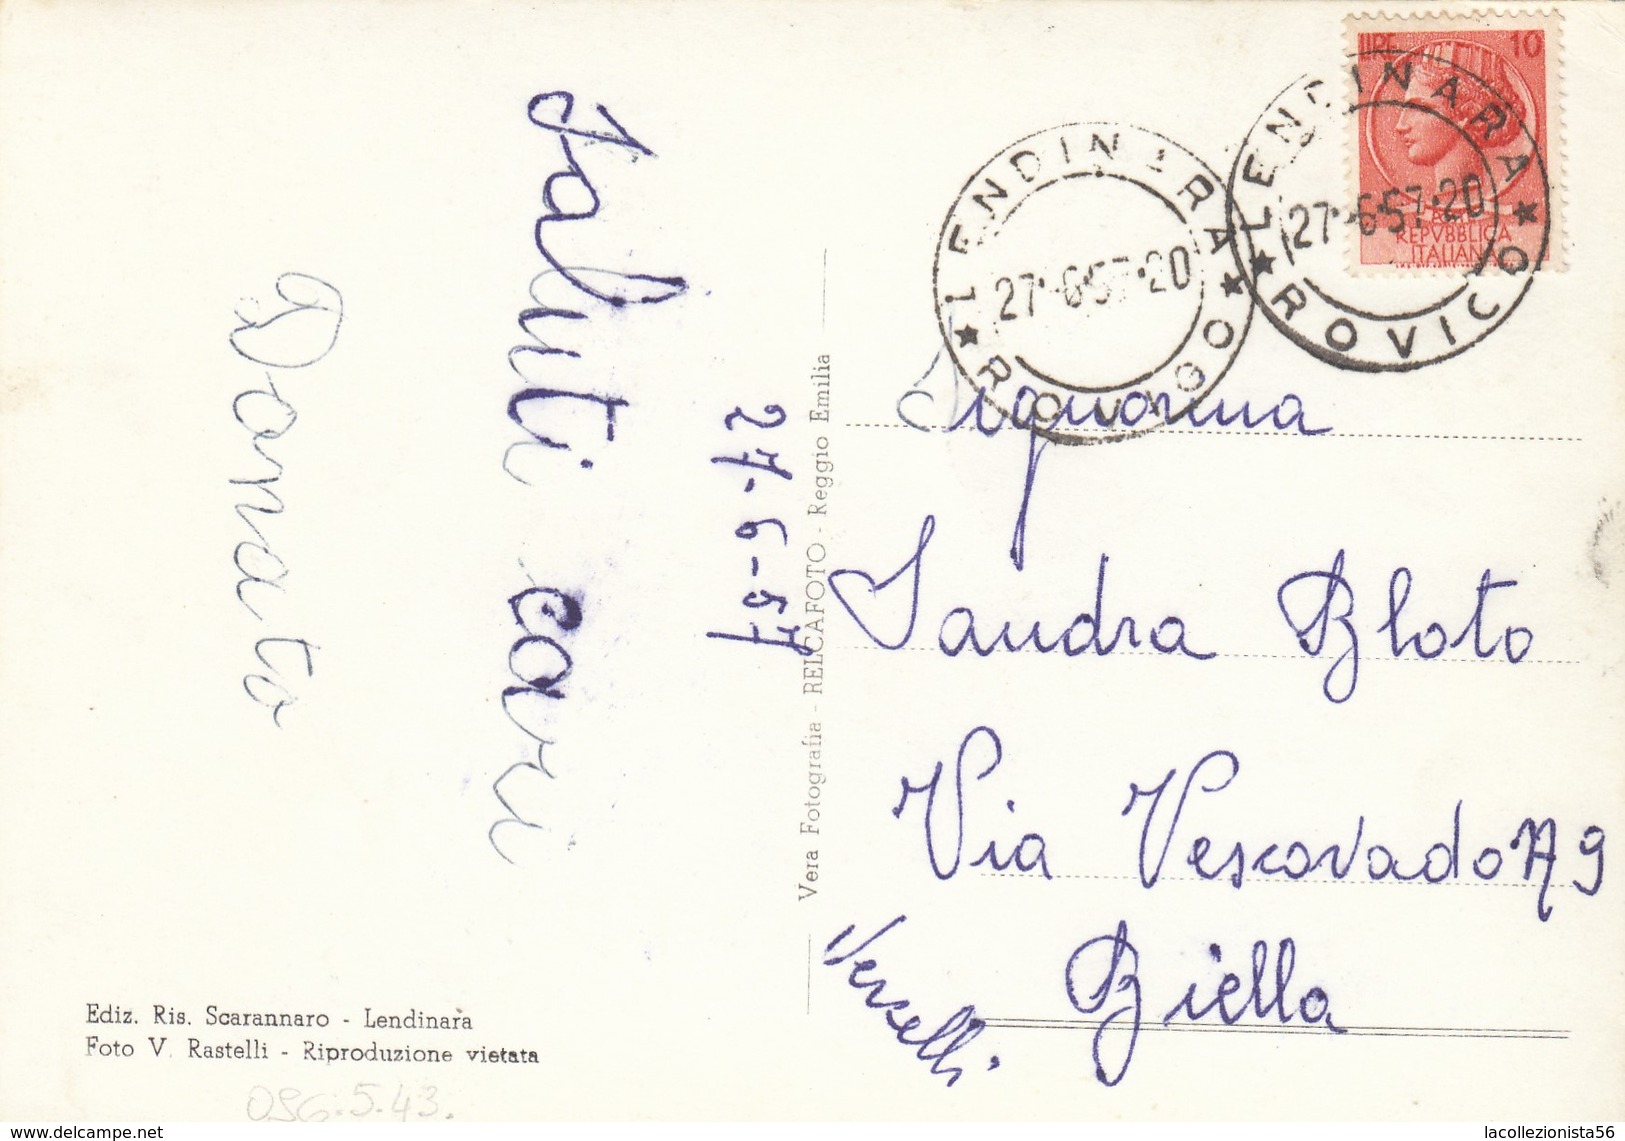 Saluti cari
Donato
27-6-57
Ediz. Ris. Scarannaro - Lendinara
Foto V. Rastelli - Riproduzione vietata
OSG.5.43.
Vera Fotografia - RELCAFOTO - Reggio Emilia
LENDINARA
27·6·57·20
★ ROVIGO ★
LENDINARA
27·6·57·20
★ ROVIGO ★
LIRE 10
REPVBBLICA
ITALIANA
Signorina
Sandra Bloto
Via Vescovado N 9
Biella
Verselli
delcampe.net
lacollezionista56